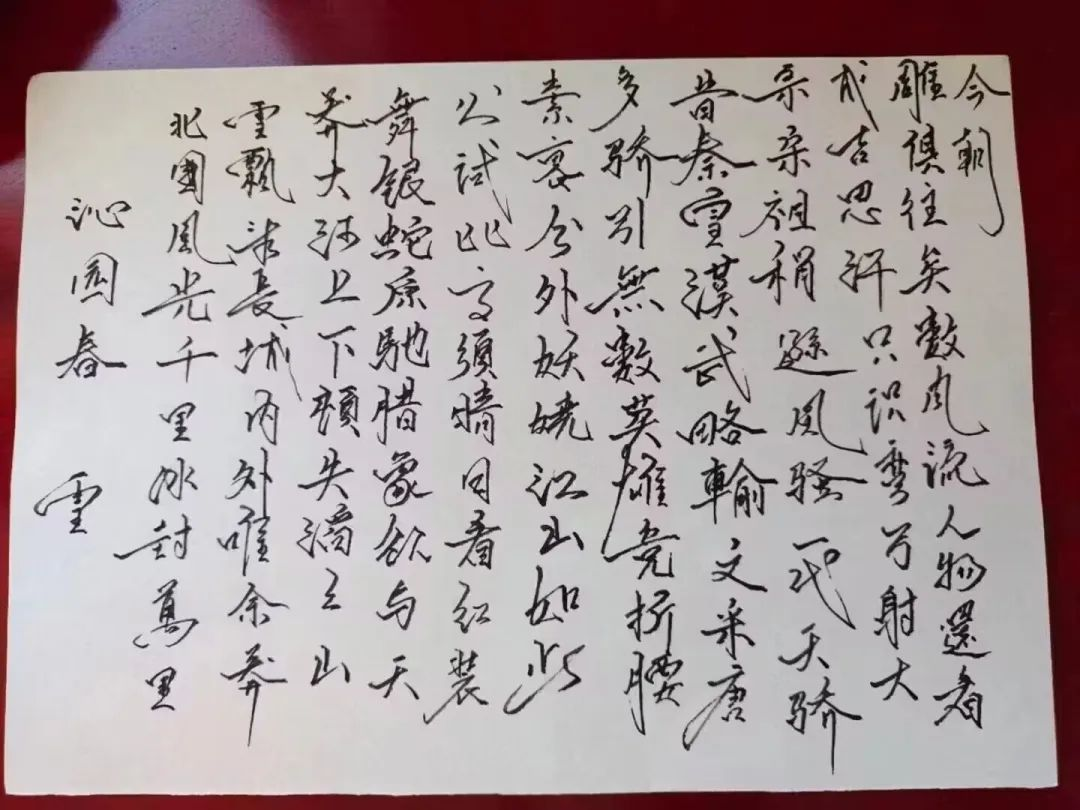 沁園春 雪
北國風光千里冰封萬里
雪飄望長城内外唯余莽
莽大河上下頓失滔滔山
舞银蛇原馳腊象欲与天
公試比高須晴日看红装
素裹分外妖娆江山如此
多骄引無數英雄竞折腰
昔秦皇漢武略輸文采唐
宗宋祖稍遜風骚一代天骄
成吉思汗只识彎弓射大
雕俱往矣數风流人物還看
今朝